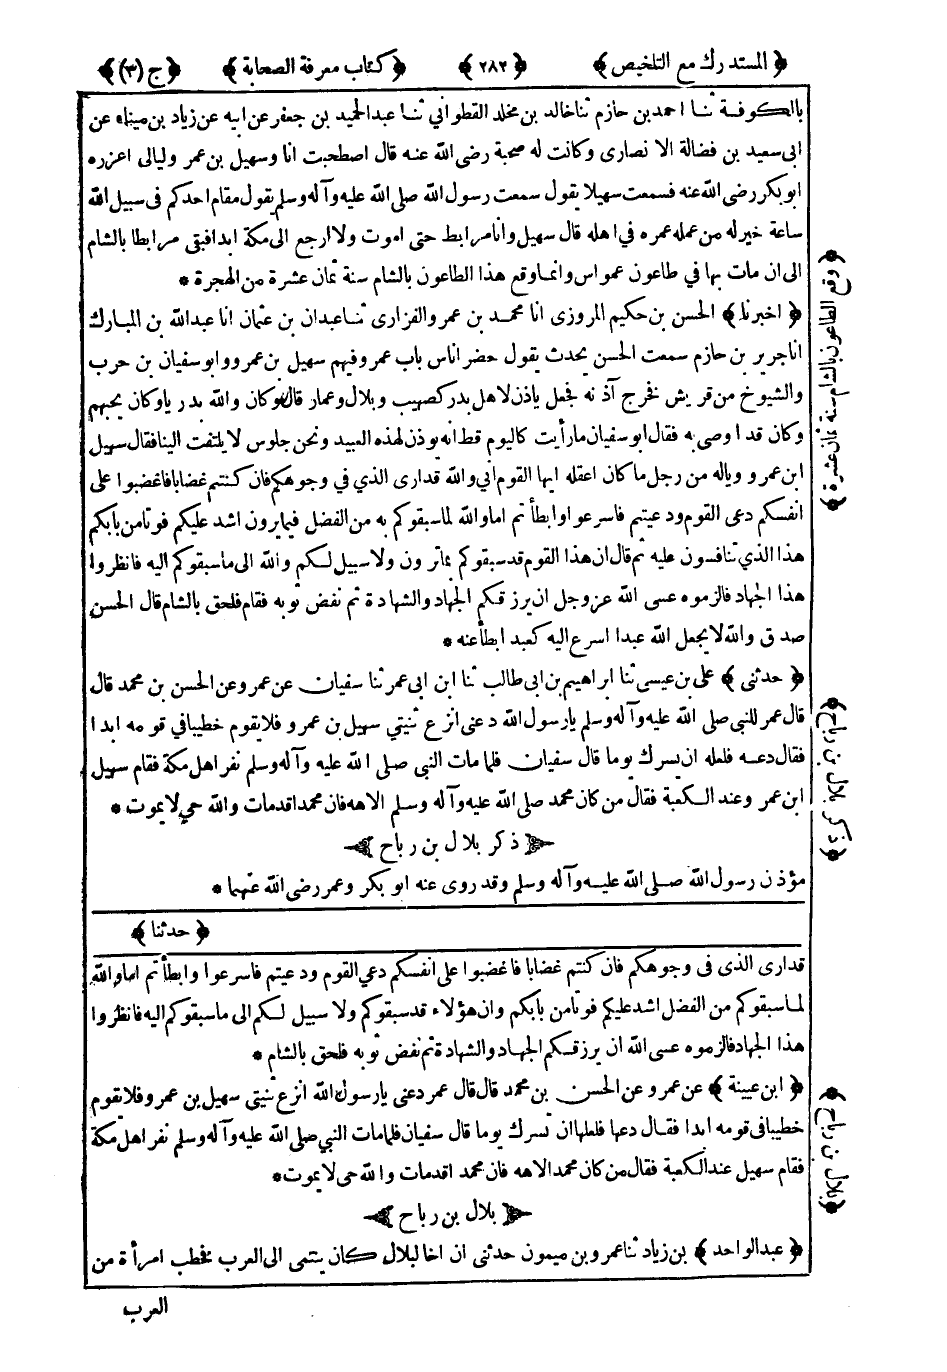 ﴿ المستدرك مع التلخيص ﴾ ﴿ ٢٨٢ ﴾ ﴿ كتاب معرفة الصحابة ﴾ ﴿ ج (٣) ﴾
بالكوفة ثنا احمد بن حازم ثنا خالد بن مخلد القطواني ثنا عبدالحميد بن جعفر عن ابيه عن زياد بن ميناء عن
ابى سعيد بن فضالة الانصارى وكانت له صحبة رضى الله عنه قال اصطحبت انا وسهيل بن عمر وليالى اعزره
ابوبكر رضى الله عنه فسمعت سهيلا يقول سمعت رسول الله صلى الله عليه وآله وسلم يقول مقام احدكم فى سبيل الله
ساعة خير له من عمله عمره في اهله قال سهيل وانا مرابط حتى اموت ولا ارجع الى مكة ابدا فبقى مرابطا بالشام
الى ان مات بها في طاعون عمواس وانما وقع هذا الطاعون بالشام سنة ثمان عشرة من الهجرة *
﴿ اخبرنا ﴾ الحسن بن حكيم المروزى انا محمد بن عمر والفزارى ثنا عبدان بن عثمان انا عبدالله بن المبارك
انا جرير بن حازم سمعت الحسن يحدث يقول حضر اناس باب عمر وفيهم سهيل بن عمرو وابو سفيان بن حرب
والشيوخ من قريش فخرج آذنه فجعل ياذن لاهل بدر كصهيب وبلال وعمار قال فوكان والله بدريا وكان يحبهم
وكان قد اوصى به فقال ابو سفيان ما رأيت كاليوم قط انه يوذن لهذه العبيد ونحن جلوس لا يلتفت الينا فقال سهيل
ابن عمرو وياله من رجل ما كان اعقله ايها القوم انى والله قد ارى الذي في وجوهكم فان كنتم غضابا فاغضبوا على
انفسكم دعى القوم ودعيتم فاسرعوا وابطأتم اما والله لما سبقوكم به من الفضل فيما يرون اشد عليكم فوتا من بابكم
هذا الذي تنافسون عليه ثم قال ان هذا القوم قد سبقوكم بما ترون ولا سبيل لكم والله الى ما سبقوكم اليه فانظروا
هذا الجهاد فالزموه عسى الله عزوجل ان يرزقكم الجهاد والشهادة ثم نفض ثوبه فقام فلحق بالشام قال الحسن
صدق والله لا يجعل الله عبدا اسرع اليه كعبد ابطأ عنه *
﴿ حدثنى ﴾ على بن عيسى ثنا ابراهيم بن ابى طالب ثنا ابن ابى عمر ثنا سفيان عن عمرو عن الحسن بن محمد قال
قال عمر للنبى صلى الله عليه وآله وسلم يارسول الله دعنى انزع ثنيتي سهيل بن عمرو فلا يقوم خطيبا في قومه ابدا
فقال دعه فلعله ان يسرك يوما قال سفيان فلما مات النبى صلى الله عليه وآله وسلم نفر اهل مكة فقام سهيل
ابن عمر وعند الكعبة فقال من كان محمد صلى الله عليه وآله وسلم الاهه فان محمدا قدمات والله حي لا يموت *
﴿ ذكر بلال بن رباح ﴾
مؤذن رسول الله صلى الله عليه وآله وسلم وقد روى عنه ابو بكر وعمر رضى الله عنهما *
﴿ حدثنا ﴾
قدارى الذى فى وجوهكم فان كنتم غضابا فاغضبوا على انفسكم دعي القوم ودعيتم فاسرعوا وابطأتم اما والله
لما سبقوكم من الفضل اشد عليكم فوتا من بابكم وان هؤلاء قد سبقوكم ولا سبيل لكم الى ما سبقوكم اليه فانظروا
هذا الجهاد فالزموه عسى الله ان يرزقكم الجهاد والشهادة ثم نفض ثوبه فلحق بالشام *
﴿ ابن عيينة ﴾ عن عمرو عن الحسن بن محمد قال قال عمر دعنى يارسول الله انزع ثنيتي سهيل بن عمرو فلا يقوم
خطيبا فى قومه ابدا فقال دعها فلعلها ان تسرك يوما قال سفيان فلما مات النبي صلى الله عليه وآله وسلم نفر اهل مكة
فقام سهيل عند الكعبة فقال من كان محمد الاهه فان محمد اقدمات والله حى لا يموت *
﴿ بلال بن رباح ﴾
﴿ عبدالواحد ﴾ بن زياد ثنا عمرو بن ميمون حدثنى ان اخا لبلال كان ينتمى الى العرب فخطب امرأة من
العرب
﴿ وقع الطاعون بالشام سنة ثمان عشرة ﴾
﴿ ذكر بلال بن رباح ﴾
﴿ بلال بن رباح ﴾